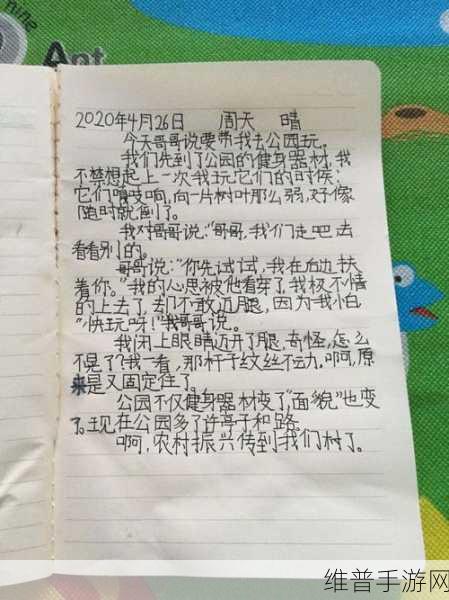 nine
Ant
2020年4月26日 周天 晴
今天哥哥说要带我去公园玩。
我们先到了公园的健身器材，我
不禁想起上一次我玩它们的时候：
它们嘎吱响，向一片树叶那么弱，好像
随时就倒了。
我对哥哥说：“哥哥，我们走吧去
看看别的。
哥哥说：“你先试试，我在边扶
着你。”我的心思被他看穿了，我极不情
的上去了，却不敢迈腿，因为我怕
“快玩呀！”我哥哥说。
我闭上眼睛迈开了腿，奇怪，怎么
不晃了？我一看，那杆子纹丝不动。啊，原
来是又固定住了。
公园不仅健身器材变了“面貌”也变
了。现在公园多了许亭子和路
啊，农村振兴传到我们村了。
维普手游网